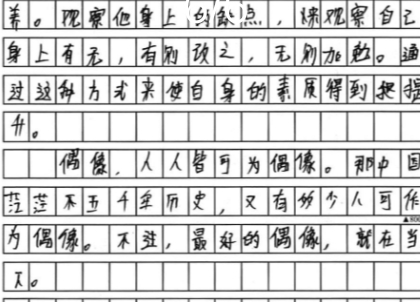 养。观察他身上的缺点，深观察自己
身上有无，有则改之，无则加勉。通
过这种方式来使自身的素质得到极提
升。
偶像，人人皆可为偶像。那中国
茫茫不五千年历史，又有多少人可作
▲800
为偶像。不过，最好的偶像，就在当
下。